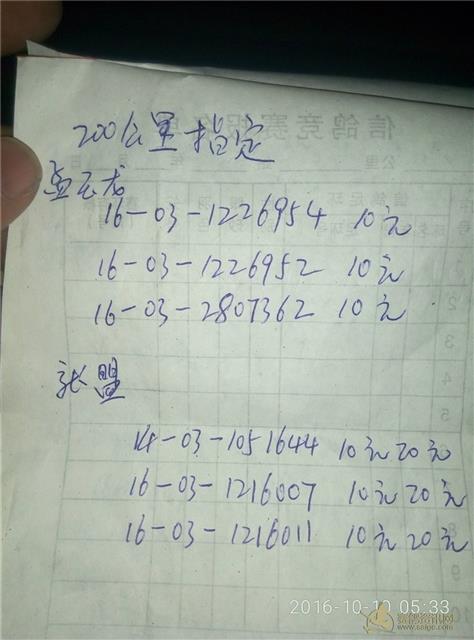 200公里指定
孟云龙
16-03-1226954 10元
16-03-1226952 10元
16-03-2807362 10元
张盟
14-03-1051644 10元20元
16-03-1216007 10元20元
16-03-1216011 10元20元
2016-10-10 05:33